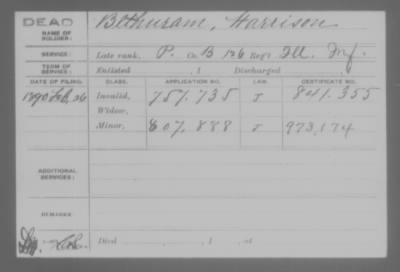 DEAD Bethuram, Harrison
NAME OF SOLDIER:
SERVICE: Late rank, P. Co. B 126 Reg't Ill. Inf.
TERM OF SERVICE: Enlisted , 1 Discharged , 1
DATE OF FILING. CLASS. APPLICATION NO. LAW. CERTIFICATE NO.
1890 Feb, 26 Invalid, 757.735 J 841.355
Widow,
Minor, 607.888 J 973,174
ADDITIONAL SERVICES:
REMARKS:
Died , 1 , at